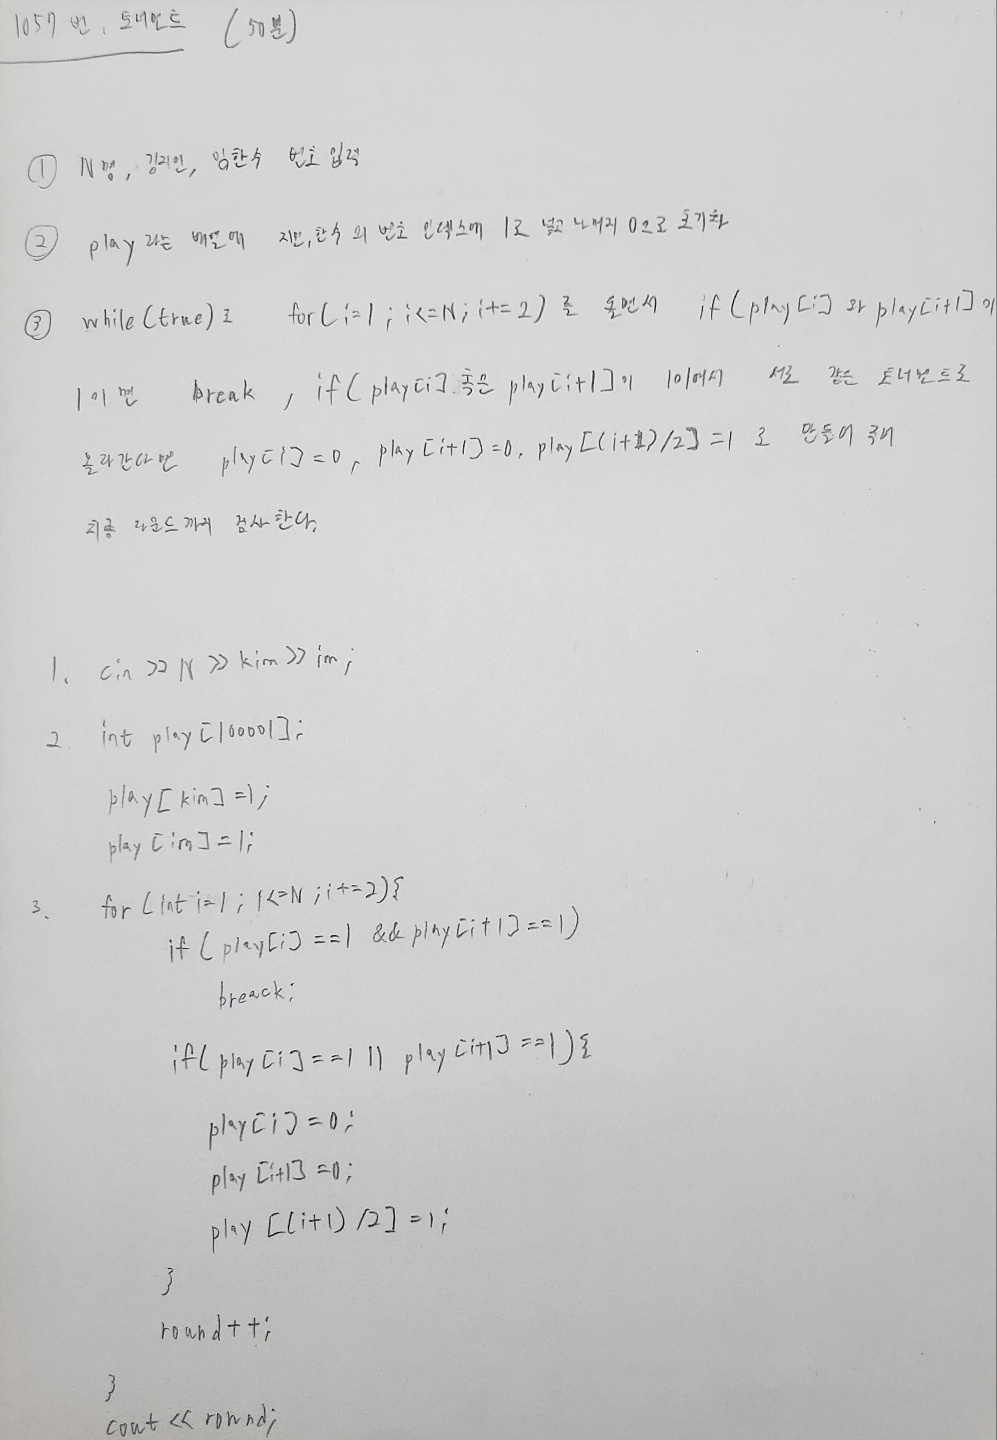 1057 번, 토너먼트 (50분)
① N명, 김지민, 임한수 번호 입력
② play 라는 배열에 지민, 한수의 번호 인덱스에 1로 넣고 나머지 0으로 초기화
③ while(true)로 for(i=1; i<=N; i+=2)를 돌면서 if(play[i] 와 play[i+1]이
1이면 break, if(play[i] 혹은 play[i+1]이 1이여서 서로 같은 토너먼트로
올라간다면 play[i]=0, play[i+1]=0, play[(i+1)/2]=1 로 만들어 주어
최종 라운드까지 검사한다.
1. cin >> N >> kim >> im;
2. int play[100001];
play[kim]=1;
play[im]=1;
3. for(int i=1; i<=N; i+=2){
if(play[i]==1 && play[i+1]==1)
breack;
if(play[i]==1 || play[i+1]==1){
play[i]=0;
play[i+1]=0;
play[(i+1)/2]=1;
}
round++;
}
cout << round;